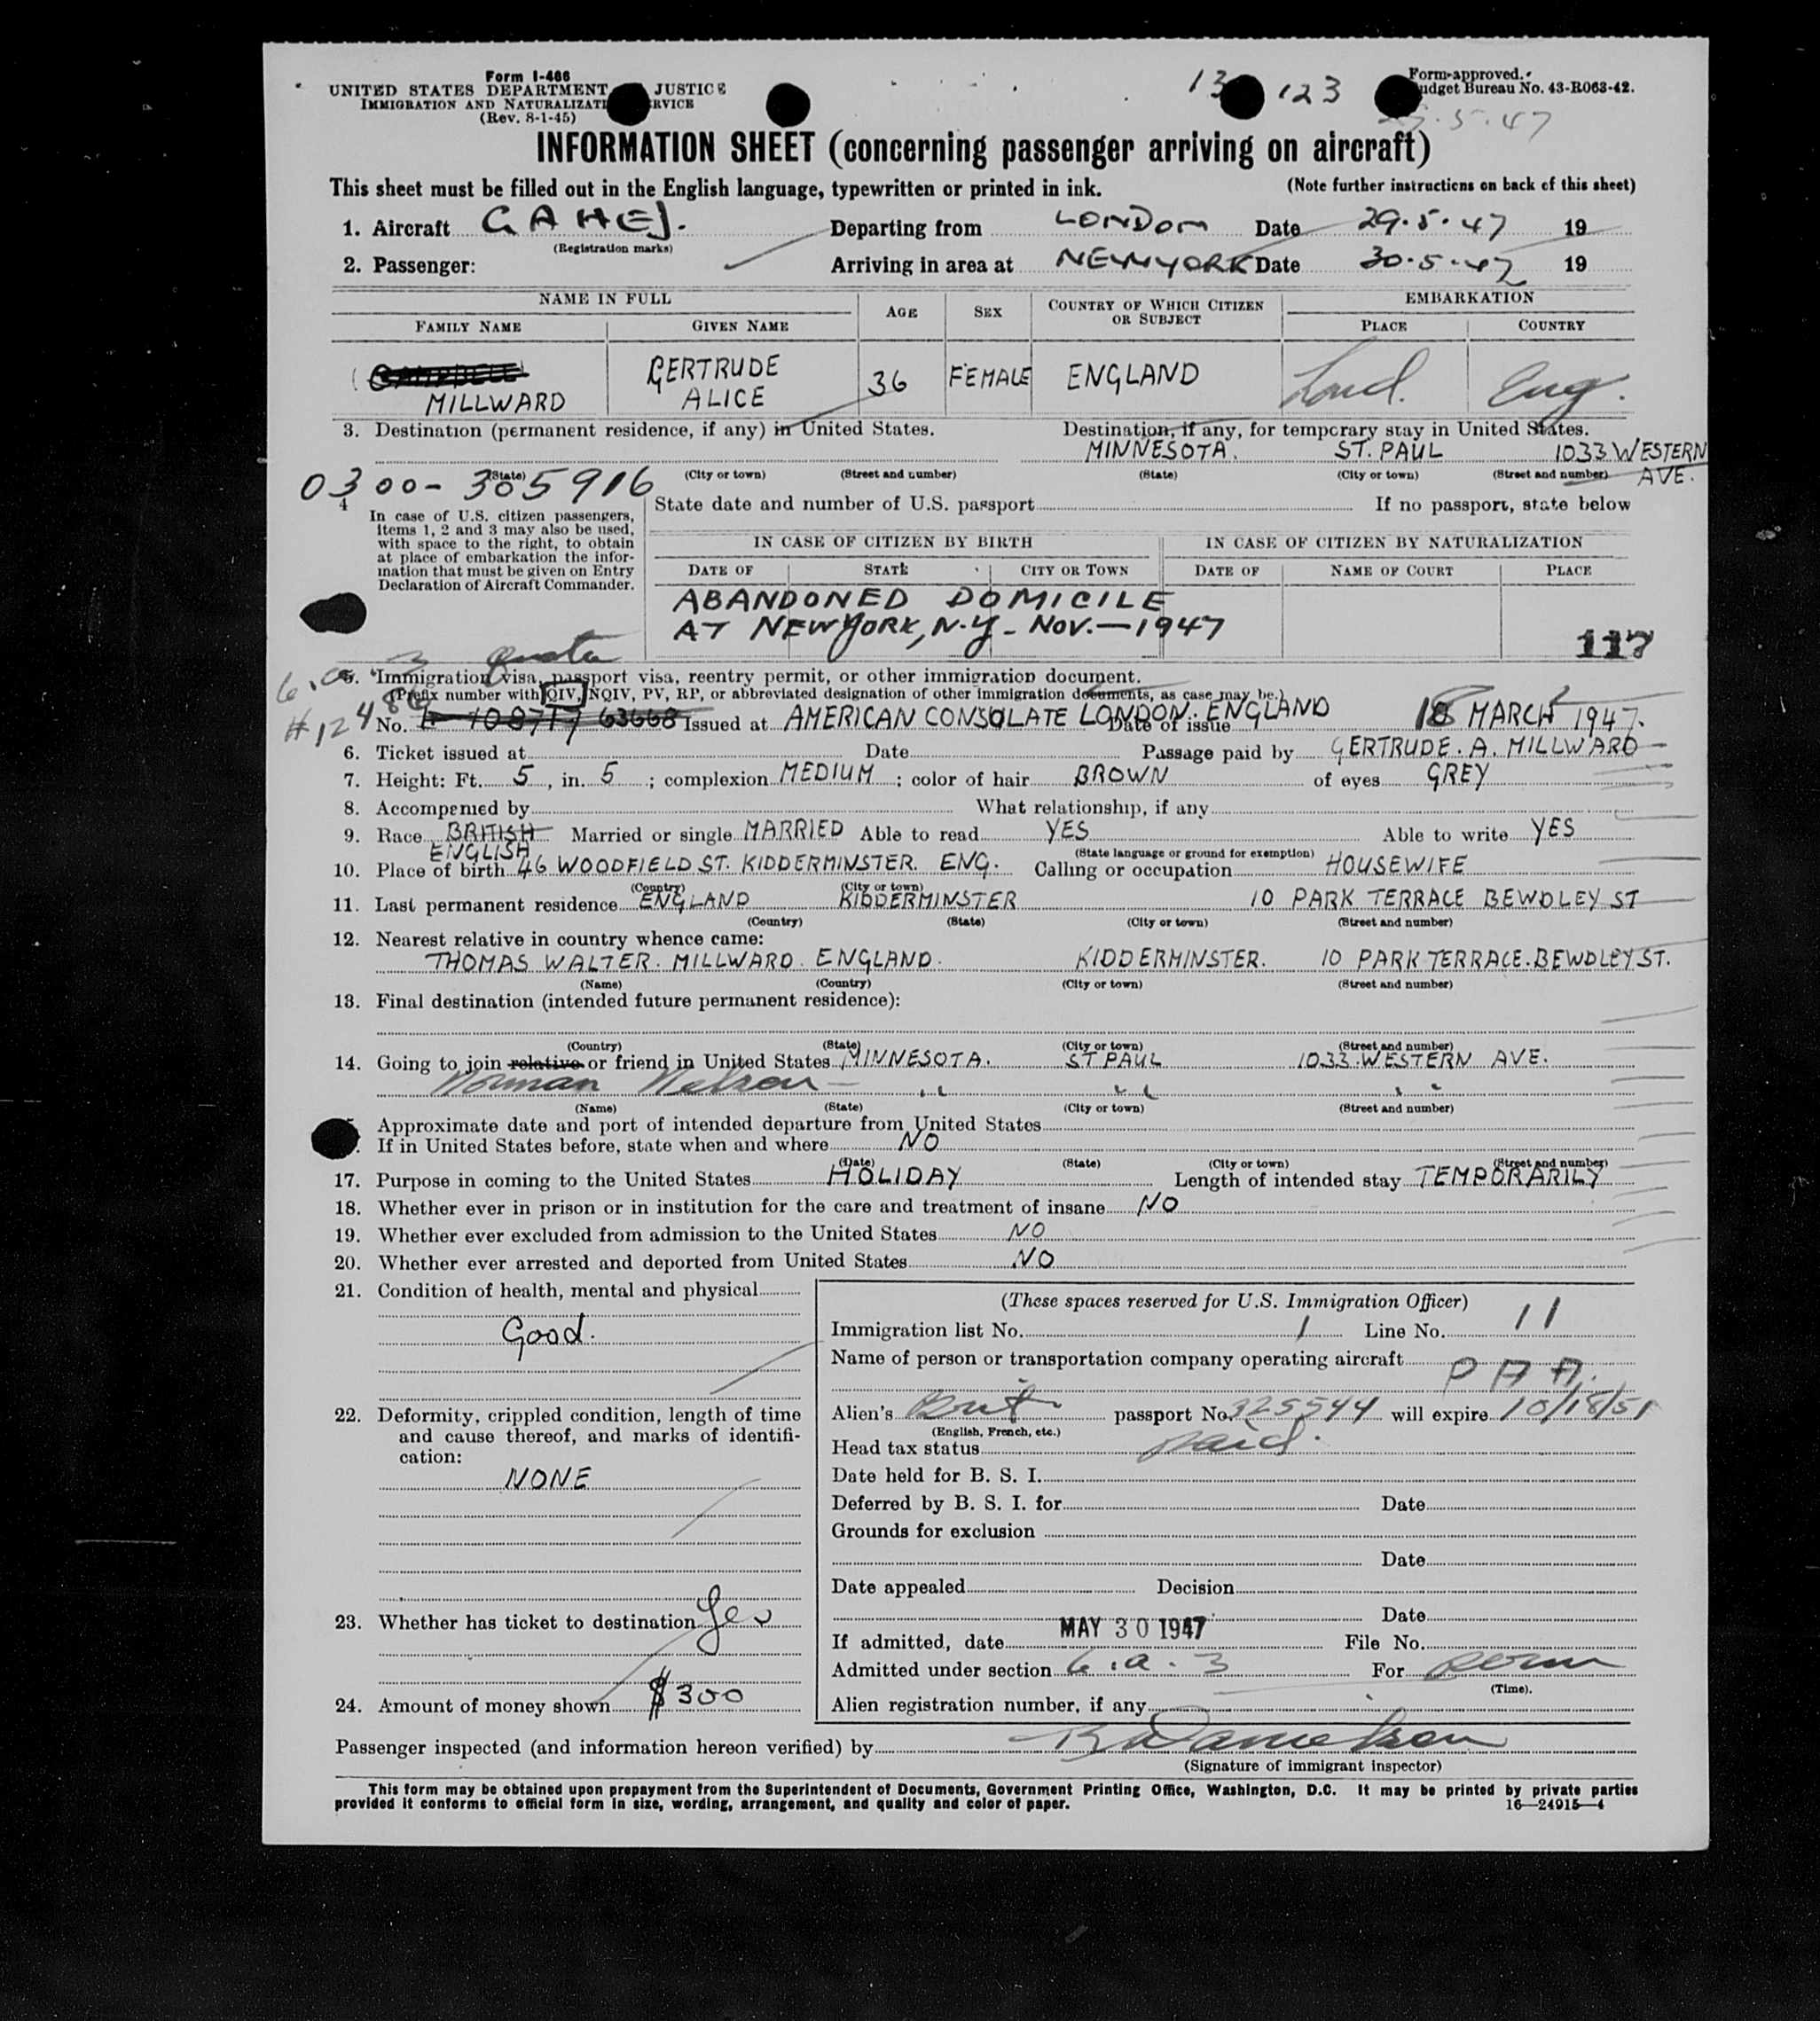 Form I-466
UNITED STATES DEPARTMENT JUSTICE
IMMIGRATION AND NATURALIZATI RVICE
(Rev. 8-1-45)
13 123
Form approved.
udget Bureau No. 43-R063-42.
.5.47
INFORMATION SHEET (concerning passenger arriving on aircraft)
This sheet must be filled out in the English language, typewritten or printed in ink. (Note further instructions on back of this sheet)
1. Aircraft G A H E J. Departing from LONDON Date 29.5.47 19
(Registration marks)
2. Passenger: Arriving in area at NEWYORK Date 30.5.47 19
NAME IN FULL AGE SEX COUNTRY OF WHICH CITIZEN OR SUBJECT EMBARKATION
FAMILY NAME GIVEN NAME PLACE COUNTRY
GERTRUDE 36 FEMALE ENGLAND Lond. Eng.
MILLWARD ALICE
3. Destination (permanent residence, if any) in United States. Destination, if any, for temporary stay in United States.
MINNESOTA. ST. PAUL 1033 WESTERN AVE.
(State) (City or town) (Street and number) (State) (City or town) (Street and number)
0300-305916
4
In case of U.S. citizen passengers,
items 1, 2 and 3 may also be used,
with space to the right, to obtain
at place of embarkation the infor-
mation that must be given on Entry
Declaration of Aircraft Commander.
State date and number of U.S. passport If no passport, state below
IN CASE OF CITIZEN BY BIRTH IN CASE OF CITIZEN BY NATURALIZATION
DATE OF STATE CITY OR TOWN DATE OF NAME OF COURT PLACE
ABANDONED DOMICILE
AT NEW YORK, N.Y. - NOV. - 1947
117
6.a.3 Quota
5. Immigration visa, passport visa, reentry permit, or other immigration document.
(Prefix number with QIV, NQIV, PV, RP, or abbreviated designation of other immigration documents, as case may be.)
No. 63668 Issued at AMERICAN CONSOLATE LONDON. ENGLAND Date of issue 18 MARCH 1947.
6. Ticket issued at Date Passage paid by GERTRUDE. A. MILLWARD
7. Height: Ft. 5, in. 5; complexion MEDIUM; color of hair BROWN of eyes GREY
8. Accompanied by What relationship, if any
9. Race BRITISH Married or single MARRIED Able to read YES Able to write YES
ENGLISH (State language or ground for exemption)
10. Place of birth 46 WOODFIELD ST. KIDDERMINSTER. ENG. Calling or occupation HOUSEWIFE
(Country) (City or town)
11. Last permanent residence ENGLAND KIDDERMINSTER 10 PARK TERRACE BEWDLEY ST
(Country) (State) (City or town) (Street and number)
12. Nearest relative in country whence came:
THOMAS WALTER. MILLWARD. ENGLAND. KIDDERMINSTER. 10 PARK TERRACE. BEWDLEY ST.
(Name) (Country) (City or town) (Street and number)
13. Final destination (intended future permanent residence):
(Country) (State) (City or town) (Street and number)
14. Going to join relative or friend in United States MINNESOTA. ST PAUL 1033. WESTERN AVE.
Norman Nelson
(Name) (State) (City or town) (Street and number)
Approximate date and port of intended departure from United States
If in United States before, state when and where NO
(Date) (State) (City or town) (Street and number)
17. Purpose in coming to the United States HOLIDAY Length of intended stay TEMPORARILY
18. Whether ever in prison or in institution for the care and treatment of insane NO
19. Whether ever excluded from admission to the United States NO
20. Whether ever arrested and deported from United States NO
21. Condition of health, mental and physical
Good.
22. Deformity, crippled condition, length of time
and cause thereof, and marks of identifi-
cation:
NONE
23. Whether has ticket to destination Yes
24. Amount of money shown $300
(These spaces reserved for U.S. Immigration Officer)
Immigration list No. 1 Line No. 11
Name of person or transportation company operating aircraft
P A A.
Alien's Brit. passport No. 325544 will expire 10/18/51
(English, French, etc.)
Head tax status paid.
Date held for B. S. I.
Deferred by B. S. I. for Date
Grounds for exclusion
Date
Date appealed Decision
Date
If admitted, date MAY 30 1947 File No.
Admitted under section 6.a.3 For perm
(Time).
Alien registration number, if any
Passenger inspected (and information hereon verified) by
(Signature of immigrant inspector)
This form may be obtained upon prepayment from the Superintendent of Documents, Government Printing Office, Washington, D.C. It may be printed by private parties
provided it conforms to official form in size, wording, arrangement, and quality and color of paper. 16—24915-4